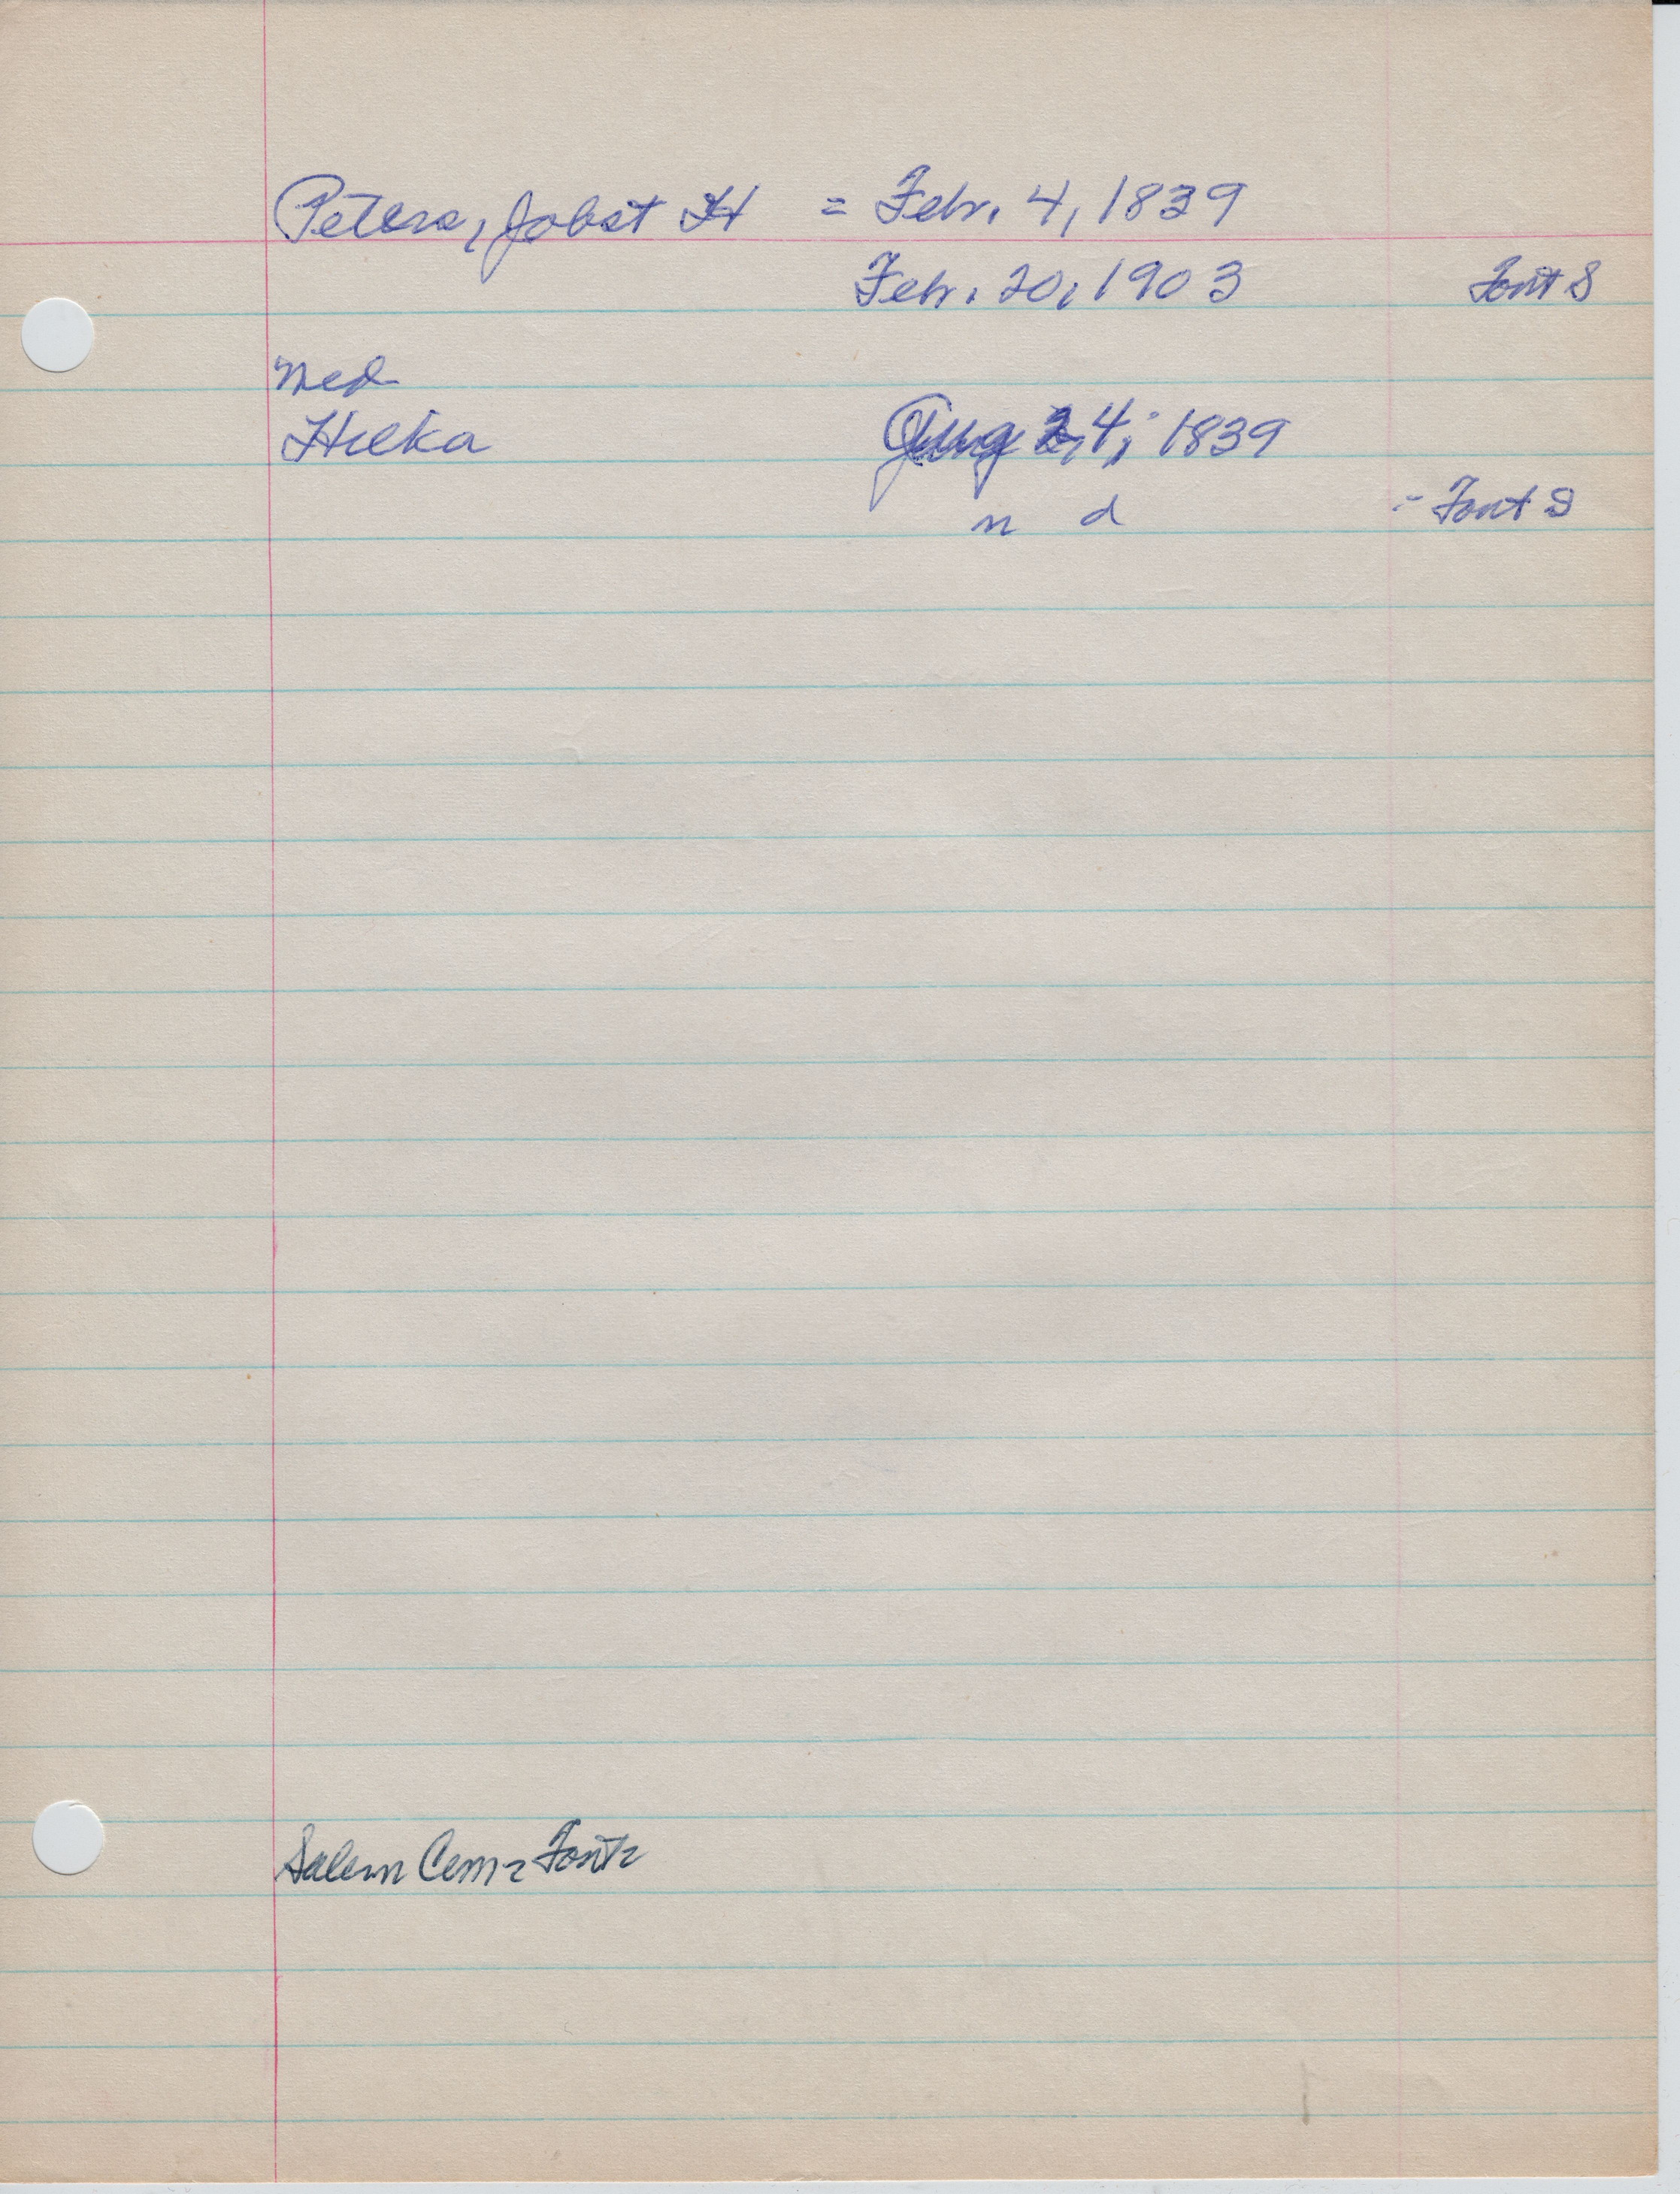 Peters, Jobst H = Febr. 4, 1839
Febr. 20, 1903 Font S
med
Hilka Aug 4, 1839
n d - Font S
Salem Cem = Font =